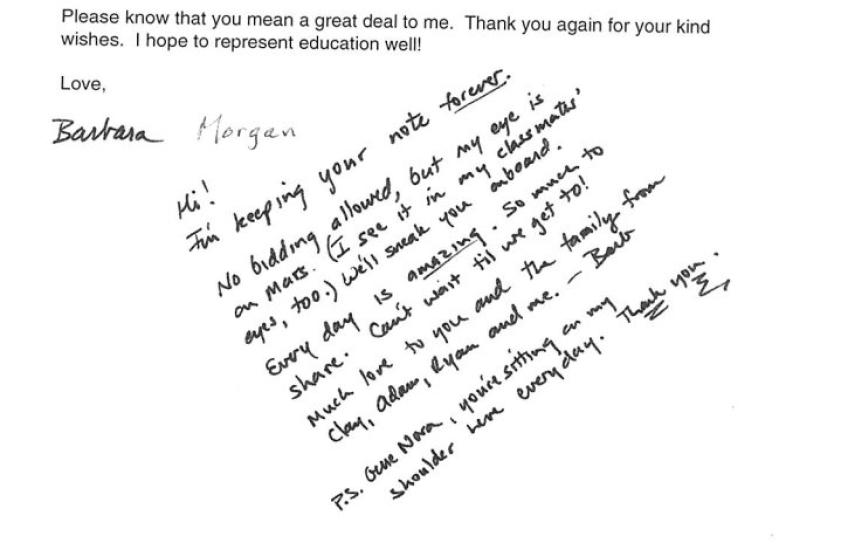 Please know that you mean a great deal to me. Thank you again for your kind
wishes. I hope to represent education well!
Love,
Barbara Morgan
Hi!
I'm keeping your note forever.
No bidding allowed, but my eye is
on Mars. (I see it in my classmates'
eyes, too.) We'll sneak you onboard.
Every day is amazing. So much to
share. Can't wait til we get to!
Much love to you and the family from
Clay, Adam, Ryan and me. – Barb
P.S. Nora, you're sitting on my
shoulder here every day. Thank you.